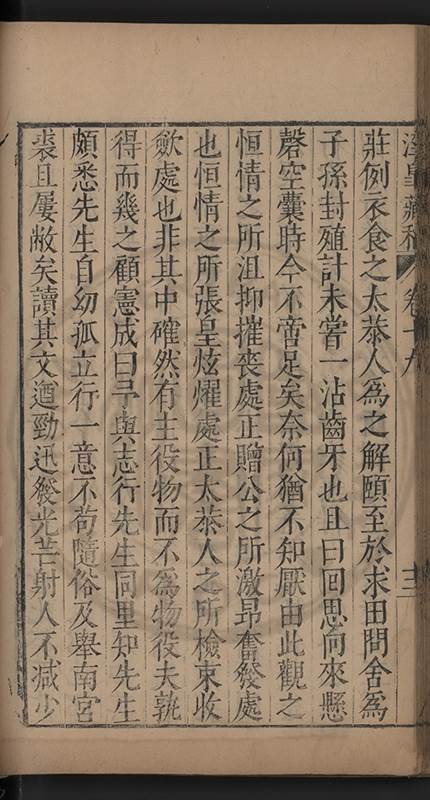 涇皋藏稿 卷十九 十三
莊例衣食之太恭人為之解頤至於求田問舍為
子孫封殖計未嘗一沾齒牙也且曰回思向來懸
磬空囊時今不啻足矣奈何猶不知厭由此觀之
恒情之所沮抑摧喪處正贈公之所激昂奮發處
也恒情之所張皇炫燿處正太恭人之所檢束收
歛處也非其中確然有主役物而不為物役夫孰
得而幾之顧憲成曰予與志行先生同里知先生
頗悉先生自幼孤立行一意不苟隨俗及舉南宮
裘且屢敝矣讀其文遒勁迅發光芒射人不減少